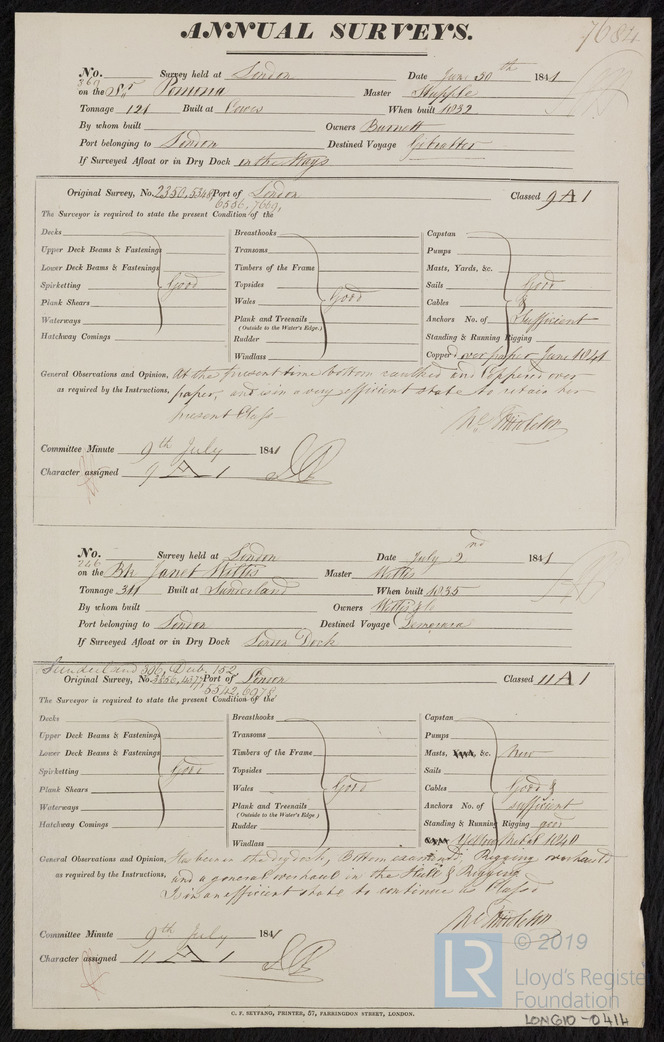 ANNUAL SURVEYS.
7684
No. 367 Survey held at London Date June 30th 1841
on the Sr Pomona Master Stapple
Tonnage 121 Built at Cowes When built 1832
By whom built Owners Burnett
Port belonging to London Destined Voyage Gibralter
If Surveyed Afloat or in Dry Dock on the Ways
Original Survey, No. 2350, 5348 Port of London Classed 9 A 1
6556, 7669,
The Surveyor is required to state the present Condition of the
Decks
Upper Deck Beams & Fastenings
Lower Deck Beams & Fastenings
Spirketting Good
Plank Shears
Waterways
Hatchway Comings
Breasthooks
Transoms
Timbers of the Frame
Topsides
Wales Good
Plank and Treenails
(Outside to the Water's Edge.)
Rudder
Windlass
Capstan
Pumps
Masts, Yards, &c.
Sails Good
Cables &
Anchors No. of Sufficient
Standing & Running Rigging
Copper'd over paper June 1841
General Observations and Opinion, At the present time bottom caulked and Copper'd over
as required by the Instructions, paper, and is in a very efficient state to retain her
present Class
Wm Middleton
Committee Minute 9th July 1841
Character assigned 9 A 1
No. 246 Survey held at London Date July 2nd 1841
on the Bk Janet Willis Master Willis
Tonnage 311 Built at Sunderland When built 1835
By whom built Owners Willis & Co
Port belonging to London Destined Voyage Demerara
If Surveyed Afloat or in Dry Dock Dock
Sunderland 306, Dub. 152,
Original Survey, No. 3856, Port of London Classed 11 A 1
5542, 6978
The Surveyor is required to state the present Condition of the
Decks
Upper Deck Beams & Fastenings
Lower Deck Beams & Fastenings
Spirketting Good
Plank Shears
Waterways
Hatchway Comings
Breasthooks
Transoms
Timbers of the Frame
Topsides
Wales Good
Plank and Treenails
(Outside to the Water's Edge)
Rudder
Windlass
Capstan
Pumps
Masts, &c. New
Sails
Cables Good &
Anchors No. of sufficient
Standing & Running Rigging good
Yellow Metal 1840
General Observations and Opinion, Has been in the drydock, Bottom examined, Rigging overhauled
as required by the Instructions, and a general overhaul in the Hull & Rigging
Is in an efficient state to continue as Class'd
Wm Middleton
Committee Minute 9th July 1841
Character assigned 11 A 1
C. F. SEYFANG, PRINTER, 57, FARRINGDON STREET, LONDON.
LR © 2019
Lloyd's Register
Foundation
LON610-0414